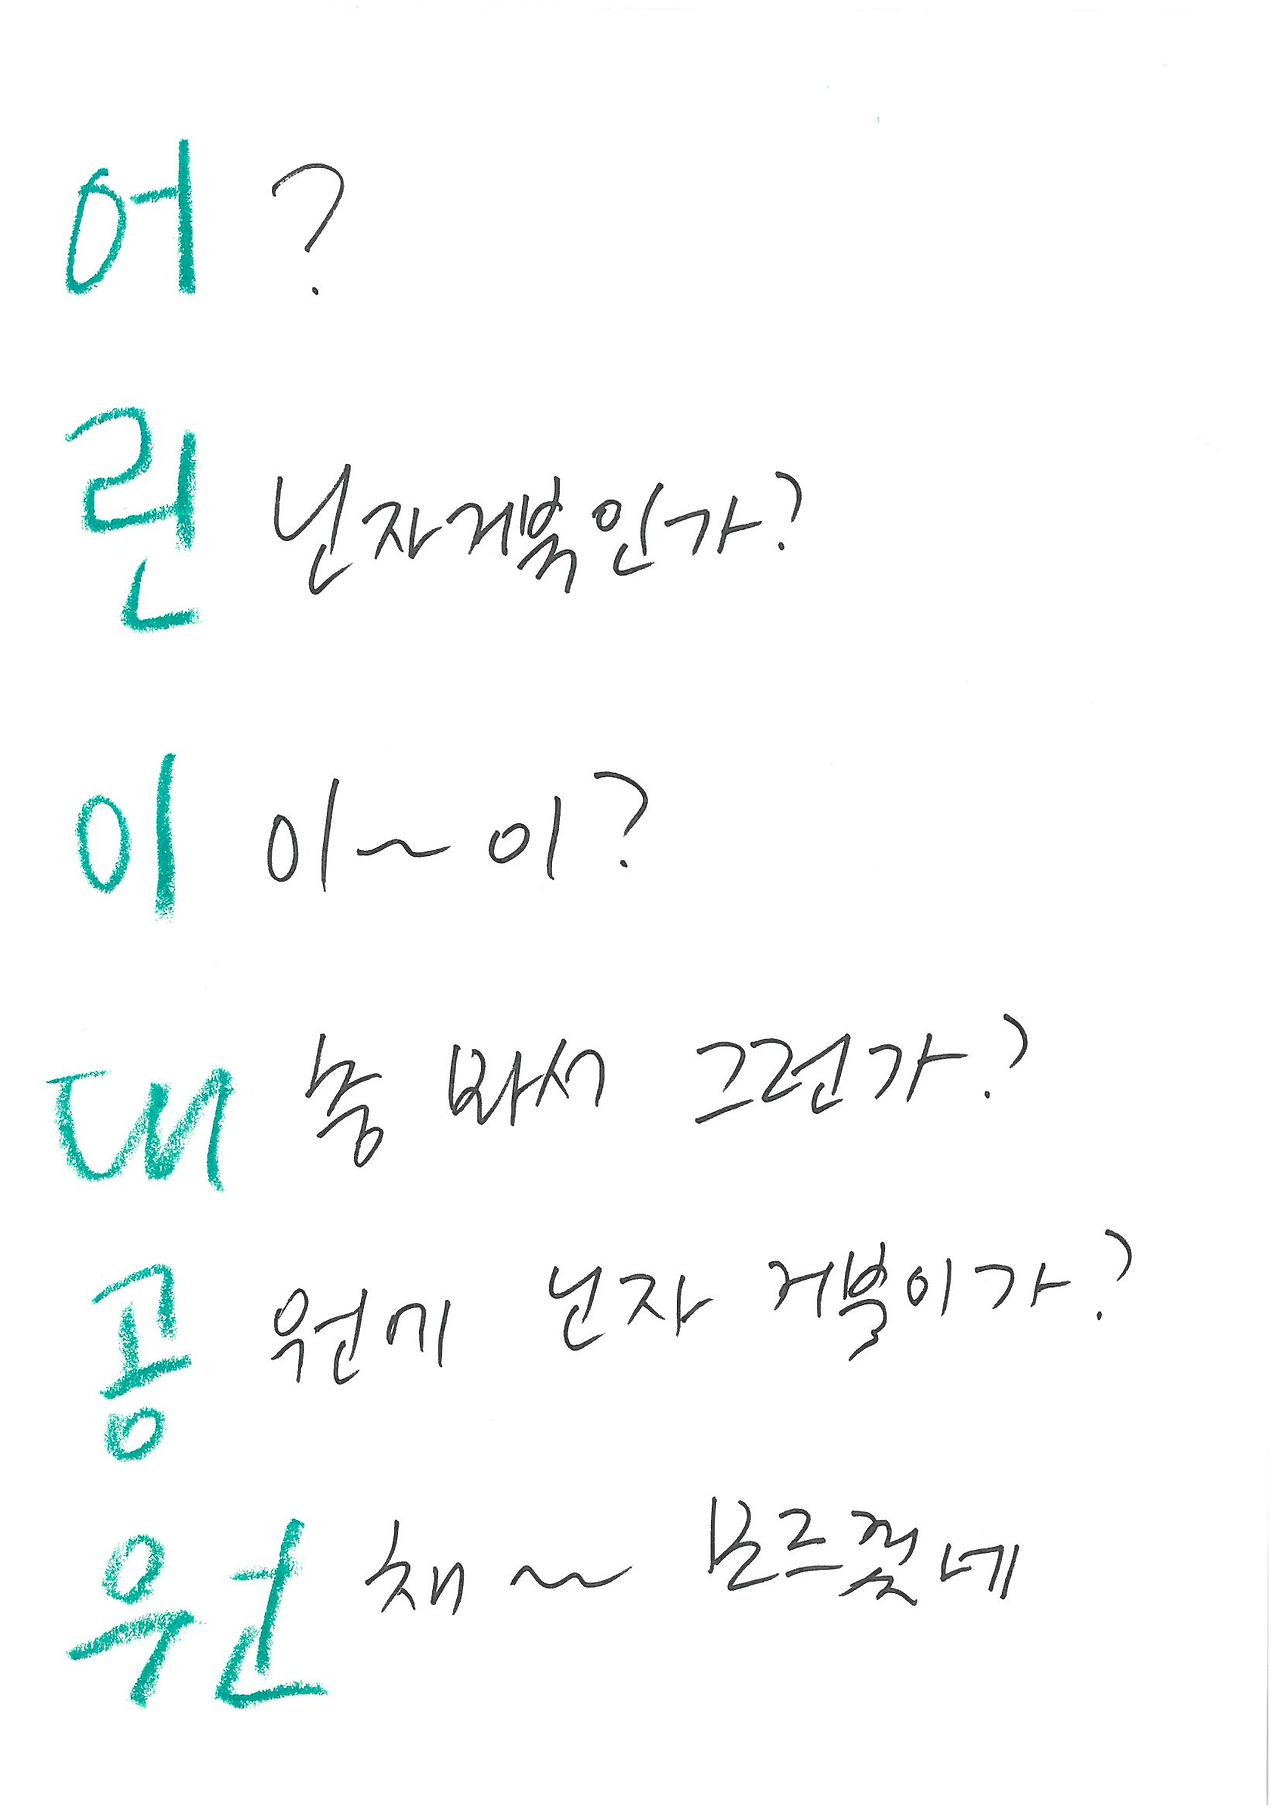 어?
린 닌자거북인가?
이 이~이?
대 충 봐서 그런가?
공 원에 닌자 거북이가?
원 채~~ 모르겠네